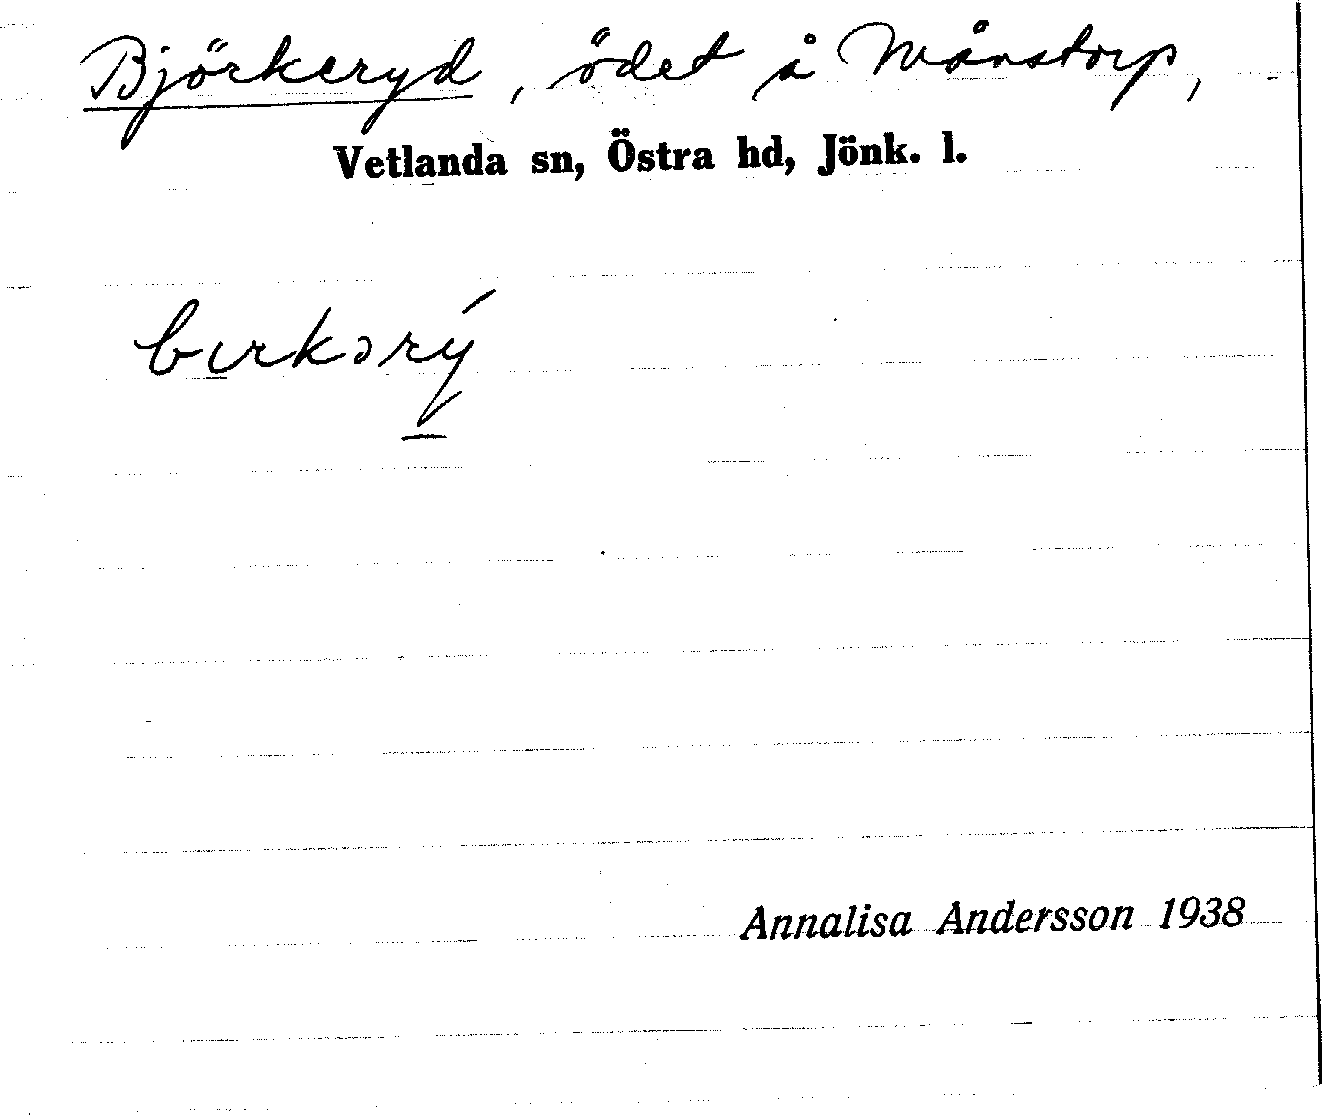 Björkeryd, ödet å Månstorp,
Vetlanda sn, Östra hd, Jönk. l.
bırkərý
Annalisa Andersson 1938